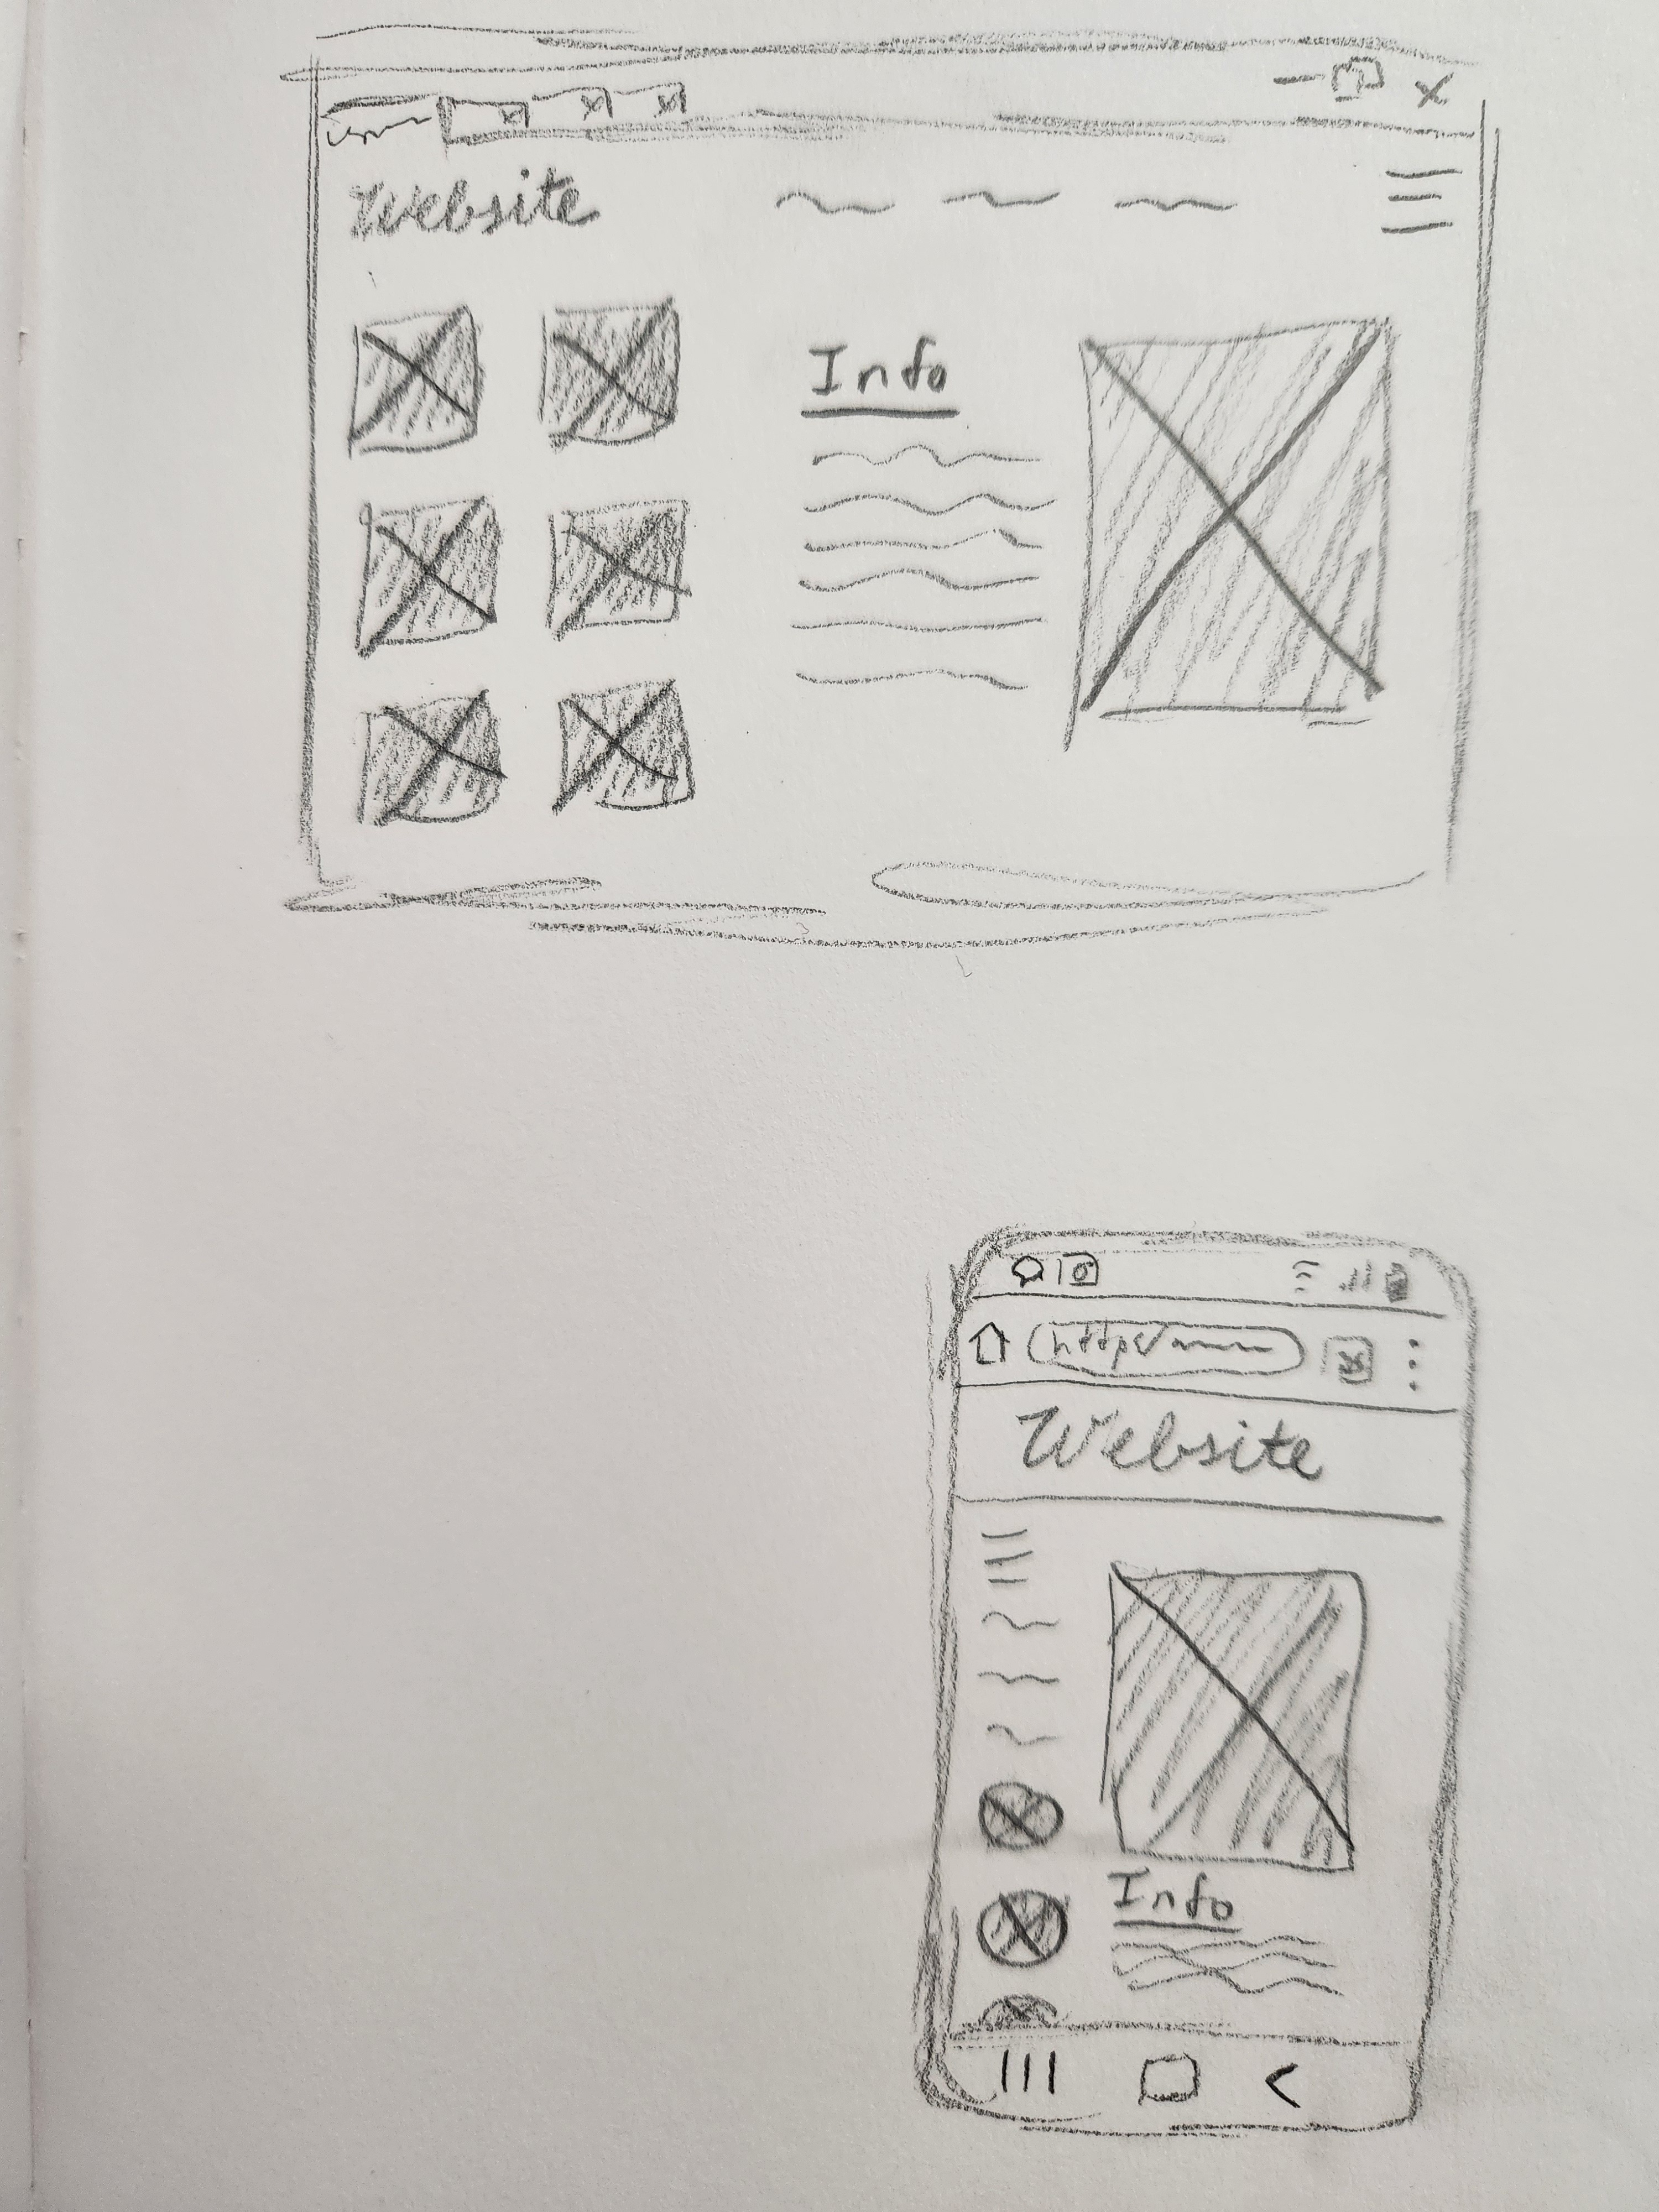 Website
Info
https/
Website
Info